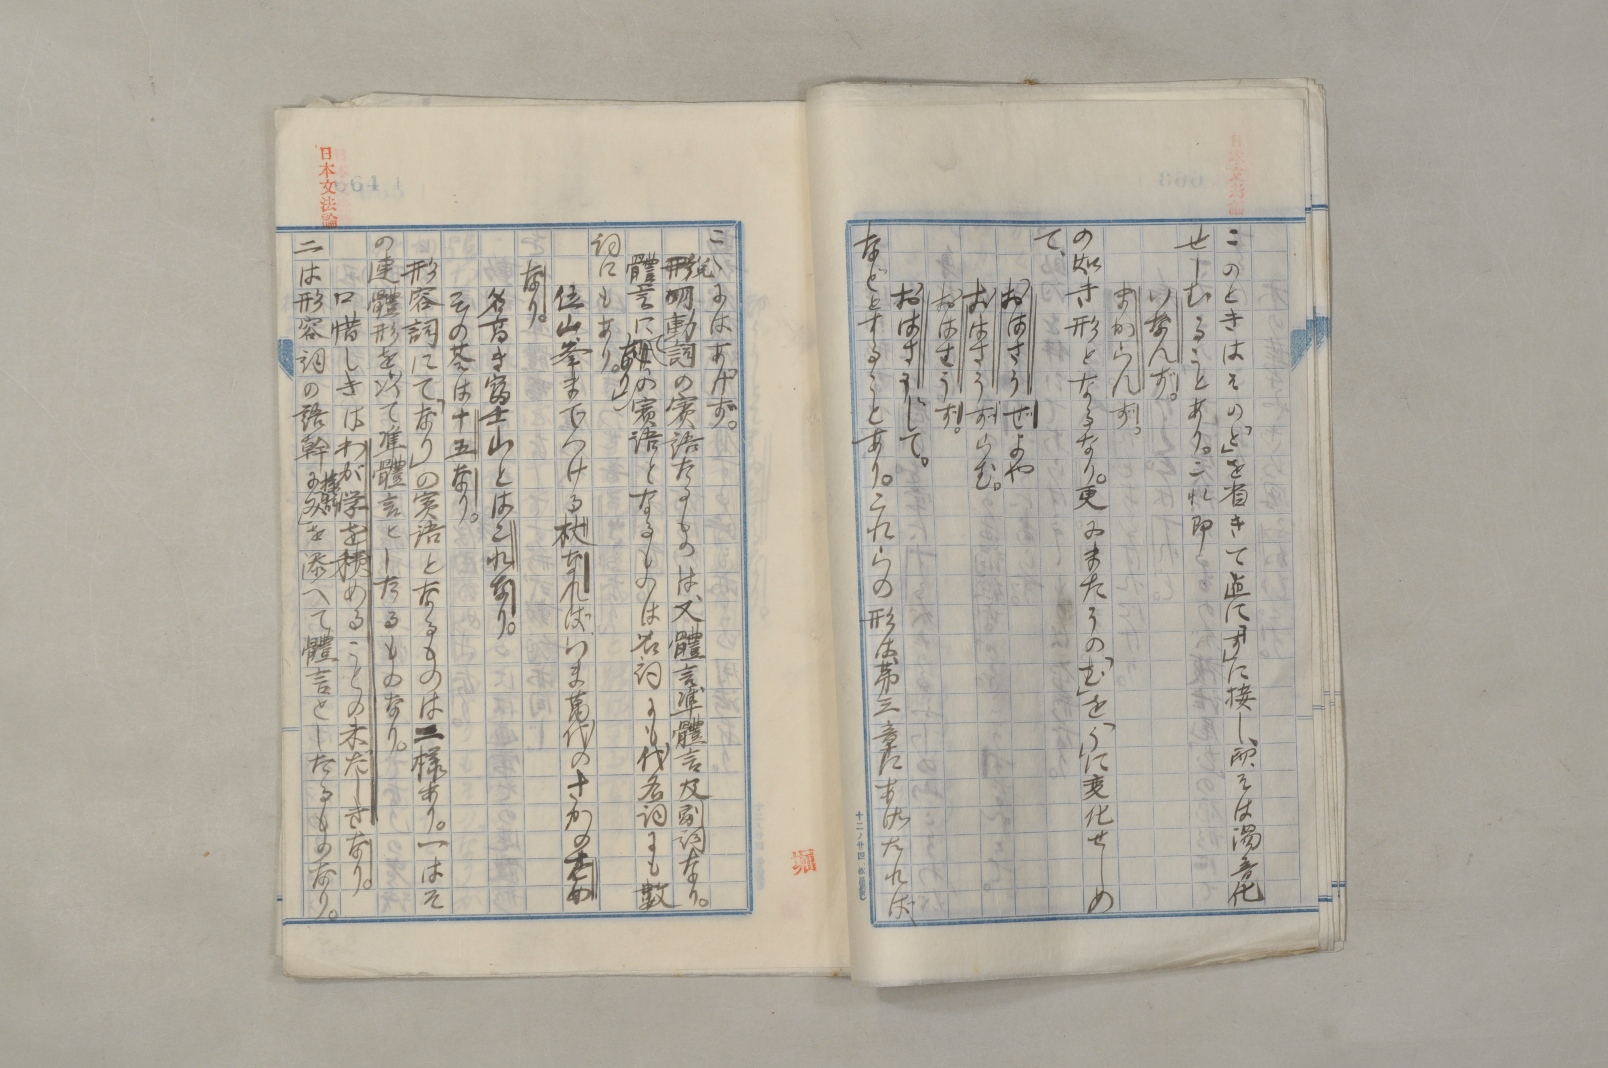 このときはその「ど」を省きて直に「ず」に接し、この「ず」は濁音化
せしむることあり。これ即
いなんず。
まからんず。
の如き形となるなり。更にまたその「む」を「う」に変化せしめ
て、
おはさうぜよや
おはさうずらむ。
おはせうず。
おはさうじて。
などとすることあり。これらの形は第三章にあげたれば
こゝにはあげず。
説明動詞の賓語たるものは、又體言準體言及副詞なり。
體言にて「あり」の賓語となるものは名詞にも代名詞にも數
詞にもあり。
位山峯までつける杖なれどいま萬代のさかのため
なり。
名高き富士山とはこれなり。
その答は十五なり。
形容詞にて「なり」の賓語となるものは二樣あり。一はそ
の連體形を以て準體言としたるものなり。
口惜しきはわが学を積めることの未だしきなり。
二は形容詞の語幹に接尾辞「さ」を添へて體言としたるものなり。
日本文法論
664
666
日本文法論
堀